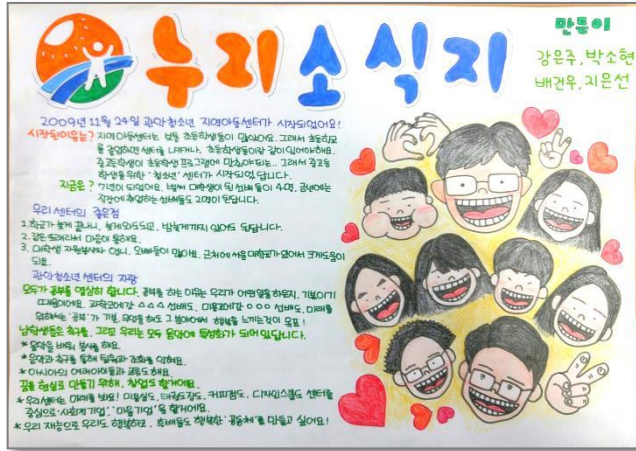 누리소식지
만든이
강은주, 박소현
배건우, 지은선
2009년 11월 24일 관악청소년 지역아동센터가 시작되었어요!
시작된이유는? 지역아동센터는 보통 초등학생들이 많았어요. 그래서 초등학교
를 졸업하면 센터를 나가거나, 초등학생들이랑 같이있어야해요.
중고등학생이 초등학생 프로그램에 맞춰야되는.. 그래서 중고등
학생을 위한 '청소년' 센터가 시작되었답니다.
지금은? 7년이 되었어요. 벌써 대학생이 된 선배들이 4명, 금년에는
직장에 취업하는 선배들도 2명이 된답니다.
우리 센터의 좋은점
1. 학교가 늦게 끝나니, 늦게와도되고, 밤늦게까지 있어도 된답니다.
2. 같은또래라서 마음이 통해요.
3. 대학생 자원봉사자 언니, 오빠들이 많아요. 근처에 서울대학교가 있어서 크게도움이
되요.
관악청소년 센터의 자랑
모두가 공부를 열심히 합니다. 공부를 하는 이유는 우리가 어떤일을하든지, 기본이기
때문이에요. 과학고에간 △△△ 선배도, 미용고에간 ○○○ 선배도, 미래를
위해서는 '공부'가 기본, 무엇을 해도 그 분야에서 행복을 느끼는것이 목표!
남학생들은 축구를, 그리고 우리는 모두 음악에 특성화가 되어 있답니다.
* 음악을 배워 봉사를 해요.
* 음악과 축구를 통해 팀웍과 조화를 익혀요.
* 아시아의 여러아이들과 교류도해요.
꿈을 현실로 만들기 위해, 창업도 할거에요.
* 우리센터는 미래를 봐요! 미용실도, 태권도장도, 커피점도, 디자인스쿨도 센터를
중심으로 '사회적기업', '마을기업'을 할거에요.
* 우리 재능으로 우리도 행복하고, 후배들도 행복한 '공동체'를 만들고 싶어요!